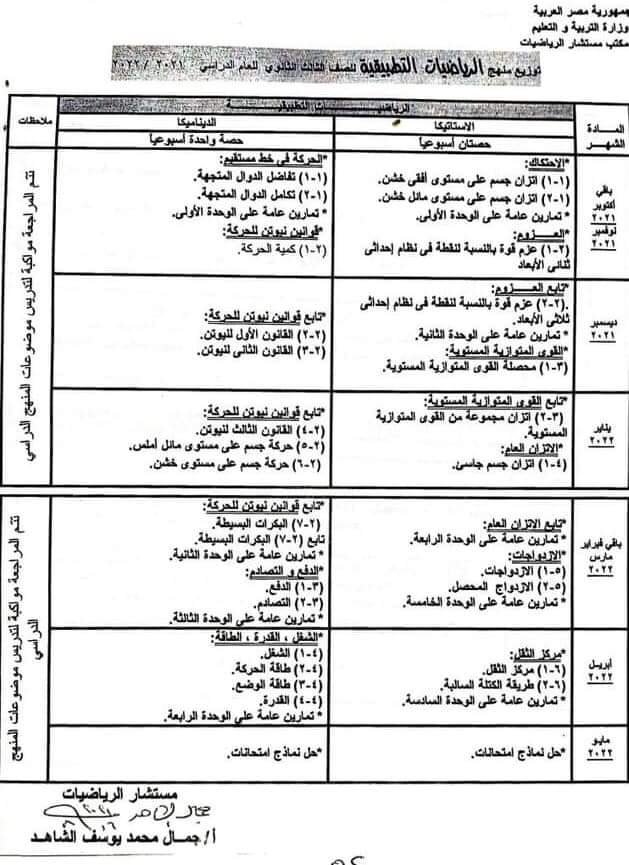 جمهورية مصر العربية
وزارة التربية و التعليم
مكتب مستشار الرياضيات
توزيع منهج الرياضيات التطبيقية للصف الثالث الثانوي للعام الدراسي ٢٠٢١ / ٢٠٢٢
المادة
الشهر
الرياضيـــات التطبيقيـــة
ملاحظات
الاستاتيكا
حصتان أسبوعياً
الديناميكا
حصة واحدة أسبوعياً
باقي
أكتوبر
٢٠٢١
نوفمبر
٢٠٢١
*الاحتكاك:
(١-١) اتزان جسم على مستوى أفقى خشن.
(١-٢) اتزان جسم على مستوى مائل خشن.
* تمارين عامة على الوحدة الأولى.
*العـــزوم:
(٢-١) عزم قوة بالنسبة لنقطة فى نظام إحداثى
ثنائى الأبعاد
*الحركة فى خط مستقيم:
(١-١) تفاضل الدوال المتجهة.
(١-٢) تكامل الدوال المتجهة.
* تمارين عامة على الوحدة الأولى.
*قوانين نيوتن للحركة:
(٢-١) كمية الحركة.
تتم المراجعة مواكبة لتدريس موضوعات المنهج الدراسي
ديسمبر
٢٠٢١
*تابع العـــزوم:
(٢-٢) عزم قوة بالنسبة لنقطة فى نظام إحداثى
ثلاثى الأبعاد.
* تمارين عامة على الوحدة الثانية.
*القوى المتوازية المستوية:
(٣-١) محصلة القوى المتوازية المستوية.
*تابع قوانين نيوتن للحركة:
(٢-٢) القانون الأول لنيوتن.
(٢-٣) القانون الثانى لنيوتن.
يناير
٢٠٢٢
*تابع القوى المتوازية المستوية:
(٣-٢) اتزان مجموعة من القوى المتوازية
المستوية.
*الاتزان العام:
(٤-١) اتزان جسم جاسئ.
*تابع قوانين نيوتن للحركة:
(٢-٤) القانون الثالث لنيوتن.
(٢-٥) حركة جسم على مستوى مائل أملس.
(٢-٦) حركة جسم على مستوى خشن.
باقي فبراير
مارس
٢٠٢٢
*تابع الاتزان العام:
* تمارين عامة على الوحدة الرابعة.
*الازدواجات:
(٥-١) الازدواجات.
(٥-٢) الازدواج المحصل.
* تمارين عامة على الوحدة الخامسة.
*تابع قوانين نيوتن للحركة:
(٢-٧) البكرات البسيطة.
تابع (٢-٧) البكرات البسيطة.
* تمارين عامة على الوحدة الثانية.
*الدفع و التصادم:
(٣-١) الدفع.
(٣-٢) التصادم.
* تمارين عامة على الوحدة الثالثة.
تتم المراجعة مواكبة لتدريس موضوعات المنهج
الدراسي
أبريل
٢٠٢٢
*مركز الثقل:
(٦-١) مركز الثقل.
(٦-٢) طريقة الكتلة السالبة.
* تمارين عامة على الوحدة السادسة.
*الشغل ، القدرة ، الطاقة:
(٤-١) الشغل.
(٤-٢) طاقة الحركة.
(٤-٣) طاقة الوضع.
(٤-٤) القدرة.
* تمارين عامة على الوحدة الرابعة.
مايو
٢٠٢٢
*حل نماذج امتحانات.
*حل نماذج امتحانات.
مستشار الرياضيات
أ/جمال محمد يوسف الشاهد